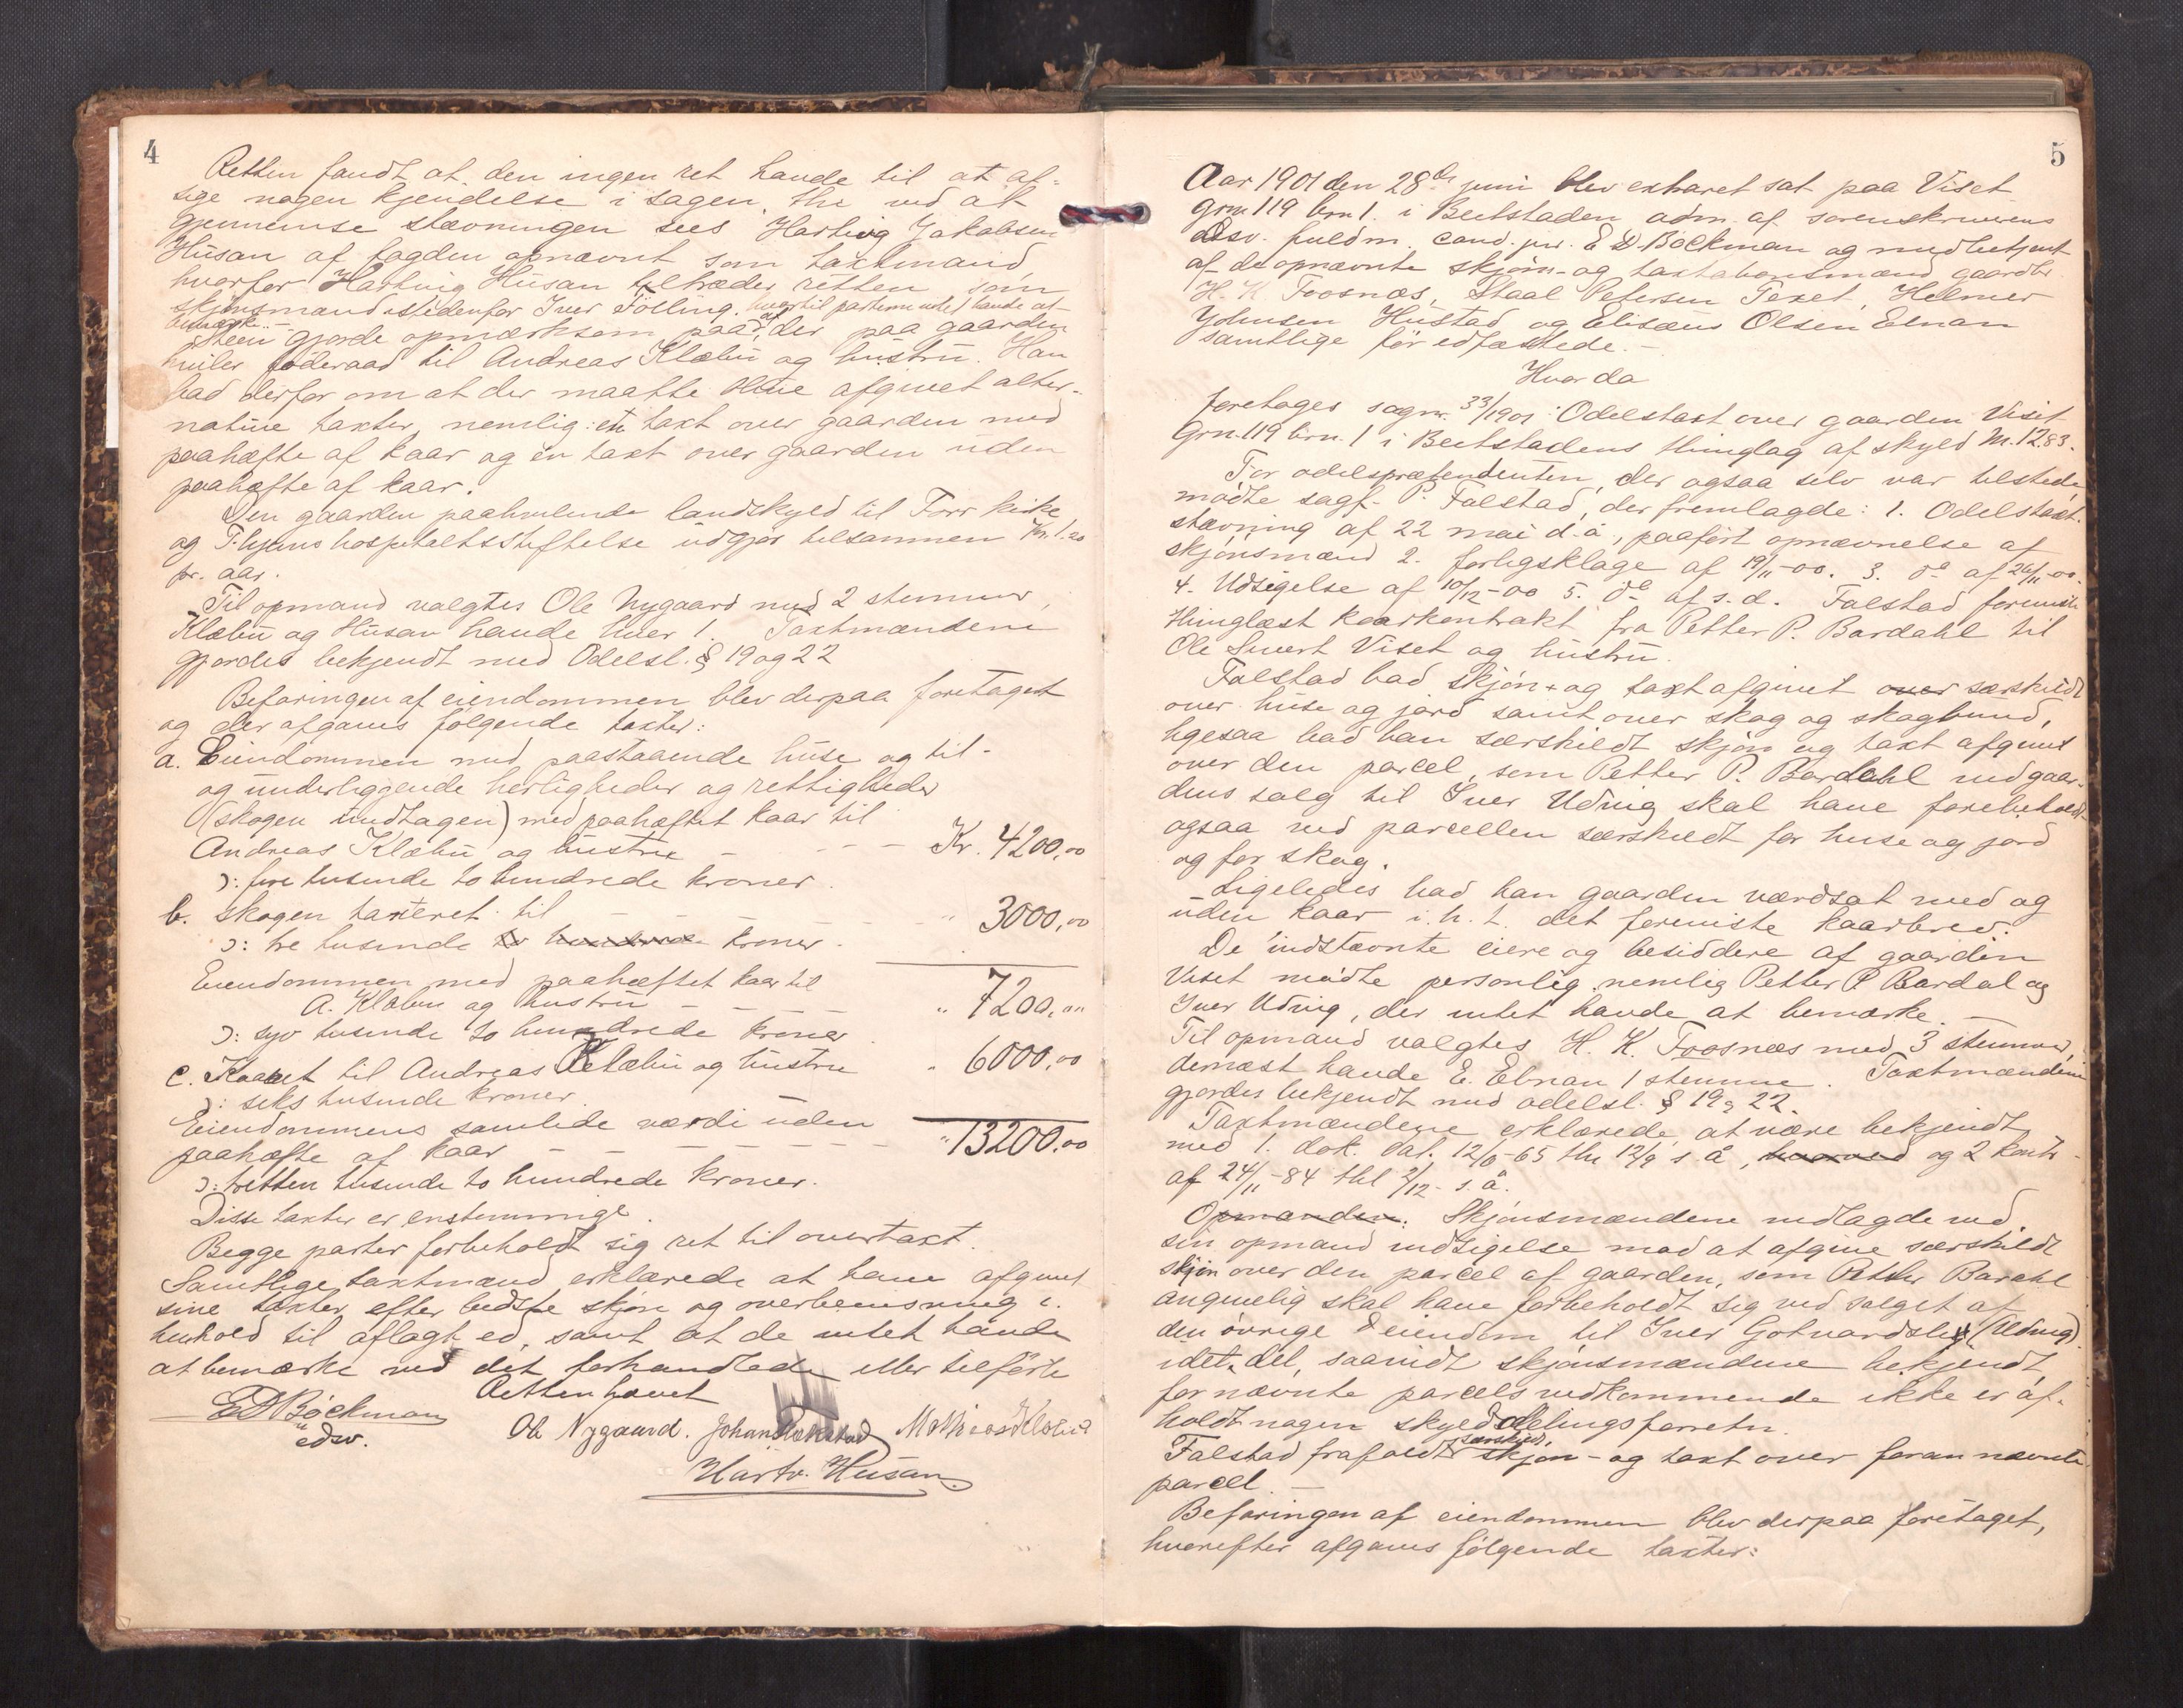 4
Retten fandt at den ingen ret havde til at af-
sige nogen kjendelse i sagen, thi ved at
gjennemse stævningen sees Hartvig Jakobsen
Husan af fogden opnævnt som taxtmand,
hvorfor Hartvig Husan tiltræder retten som
skjønsmand istedenfor Iver Følling, hvortil parterne intet havde at
bemærke. –
Steen gjorde opmærksom paa, at der paa gaarden
hviler føderaad til Andreas Klæbu og hustru. Han
bad derfor om at der maatte blive afgivet alter-
native taxter, nemlig: en taxt over gaarden med
paahæfte af kaar og en taxt over gaarden uden
paahæfte af kaar.
Den gaarden paahvilende landskyld til Forr kirke
og T.hjems hospitalsstiftelse udgjør tilsammen Kr. 1.20
pr. aar.
Til opmand valgtes Ole Nygaard med 2 stemmer,
Klæbu og Husan havde hver 1. Taxtmændene
gjordes bekjendt med Odelsl. § 19 og 22
Befaringen af eiendommen blev derpaa foretaget
og der afgaves følgende taxter:
a. Eiendommen med paastaaende huse og til-
og underliggende herligheder og rettigheder
(skogen undtagen) med paahæftet kaar til
Andreas Klæbu og hustru – – – – Kr. 4200,00
ɔ: fire tusinde to hundrede kroner.
b. skogen taxeret til – – – – " 3000,00
ɔ: tre tusinde to hundrede kroner.
Eiendommen med paahæftet kaar til
A. Klæbu og hustru – – – – " 7200,00
ɔ: syv tusinde to hundrede kroner.
c. Kaaret til Andreas Klæbu og hustru " 6000,00
ɔ: seks tusinde kroner.
Eiendommens samlede værdi uden
paahæfte af kaar – – – – " 13200.00
ɔ: tretten tusinde to hundrede kroner.
Disse taxter er enstemmige.
Begge parter forbeholdt sig ret til overtaxt.
Samtlige taxtmænd erklærede at have afgivet
sine taxter efter bedste skjøn og overbevisning i
henhold til aflagt ed, samt at de intet havde
at bemærke ved det forhandlede eller tilførte
Retten hævet
E D Bøckman
edsv.
Ole Nygaard. Johan Mathias Klæbu
Hartv. Husan
5
Aar 1901 den 28de juni blev extraret sat paa Viset
grn. 119 brn 1. i Beitstaden adm. af sorenskriverens
edsv. fuldm. cand. jur. E D Bøckman og medbetjent
af de opnævnte skjøns- og taxtationsmænd gaardbr.
H. K Troosnæs, Staal Petersen Texet, Helmer
Johnsen Hustad og Elisæus Olsen Elnan
samtlige før edfæstede. –
Hvor da
foretages sagnr. 33/1901: Odelstaxt over gaarden Viset
Grn. 119 brn. 1 i Beitstadens thinglag af skyld M. 12.83.
For odelsprætendenten, der ogsaa selv var tilstede
mødte sagf. P. Falstad, der fremlagde: 1. Odelstaxt-
stævning af 22 mai d.å., paaført opnævnelse af
skjønsmænd 2. forligsklage af 19/11-00. 3. do af 26/11-00.
4. Udsigelse af 10/12-00 5. do af s.d. Falstad foreviste
thinglæst kaarkontrakt fra Petter P. Bardahl til
Ole Sivert Viset og hustru.
Falstad bad skjøn- og taxt afgivet over særskildt
over huse og jord samt over skog og skogbund,
ligesaa bad han særskildt skjøn og taxt afgivet
over den parcel, som Petter P. Bardahl ved gaar-
dens salg til Iver Udvig skal have forebeholdt
ogsaa ved parcellen særskildt for huse og jord
og for skog.
Ligeledes bad han gaarden værdsat med og
uden kaar i.h.t. det foreviste kaarbrev.
De indstævnte eiere og besiddere af gaarden
Viset mødte personlig, nemlig Petter P Bardal og
Iver Udvig, der intet havde at bemærke. –
Til opmand valgtes H. K. Troosnæs med 3 stemmer,
dernæst havde E. Elnan 1 stemme. Taxtmændene
gjordes bekjendt med odelsl. § 19 og 22.
Taxtmændene erklærede at være bekjendt
med 1. dok. dat. 12/6-65 thl 12/9 s å, hvorved og 2 kontr.
af 24/11-84 thl 2/12- s. å.
Opmanden. Skjønsmændene nedlagde ved
sin opmand indsigelse mod at afgive særskildt
skjøn over den parcel af gaarden, som Petter Bardahl
angivelig skal have forbeholdt sig ved salget af
den øvrige eiendom til Iver Gotvardslig (Udvig).
idet det, saavidt skjønsmændene bekjendt
for nævnte parcels vedkommende ikke er af-
holdt nogen skylddelingsforretn.
Falstad frafaldt særskildt skjøn- og taxt over foran nævnte
parcel. –
Befaringen af eiendommen blev derpaa foretaget,
hvorefter afgaves følgende taxter: